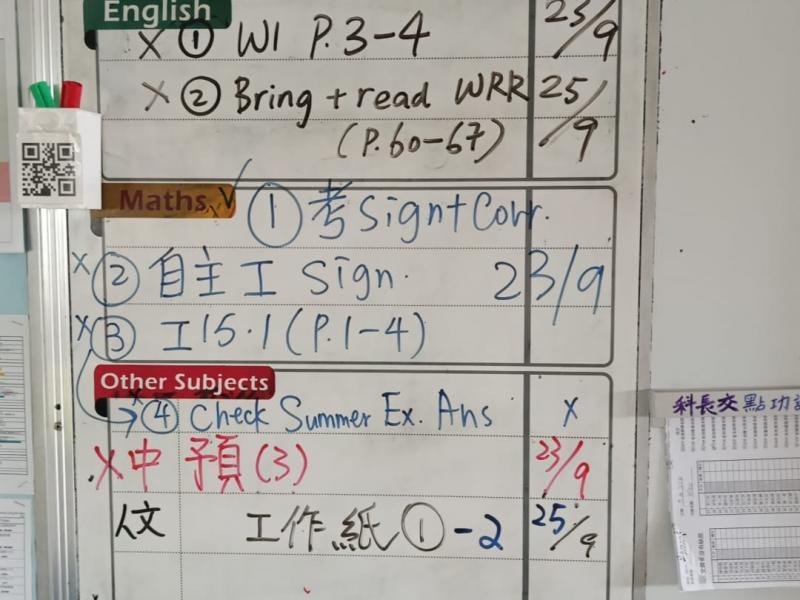 English
X ① WI P.3-4 23/9
X ② Bring + read WRR 25/9
(P.60-67)
Maths
① 考 Sign + Corr.
X ② 自主工 Sign. 23/9
X ③ 工15.1 (P.1-4)
Other Subjects
④ Check Summer Ex. Ans X
X 中 預(3) 23/9
人文 工作紙①-2 25/9
科長交點功